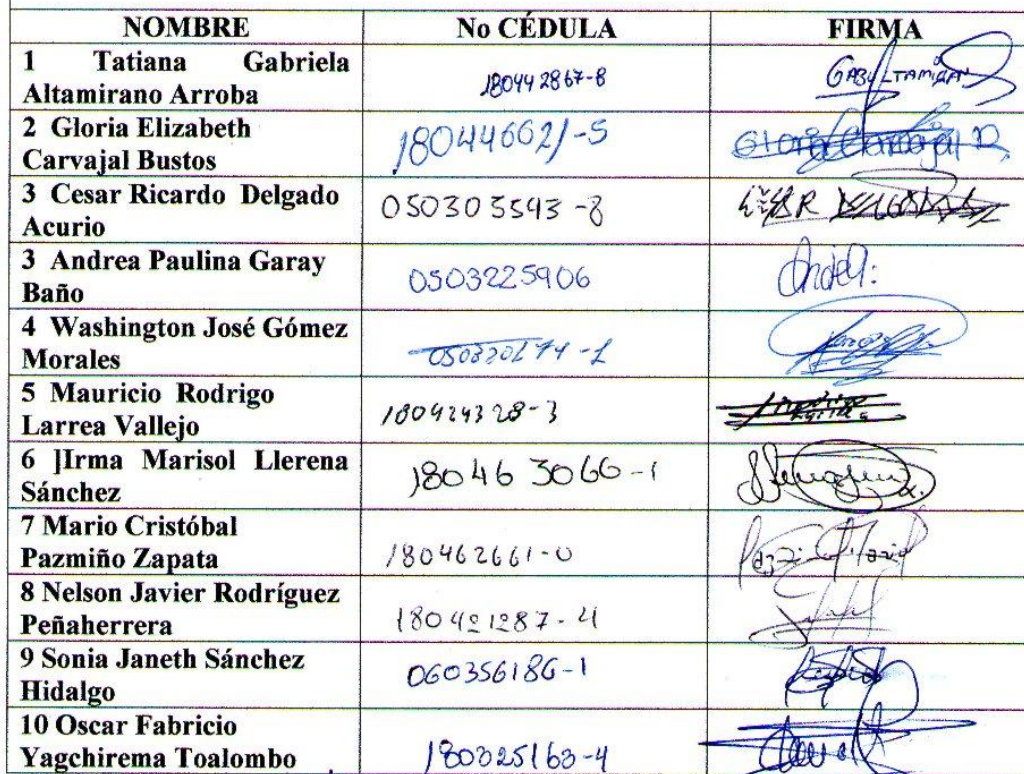 NOMBRE No CÉDULA FIRMA
1 Tatiana Gabriela
Altamirano Arroba 180442867-8
2 Gloria Elizabeth
Carvajal Bustos 180446021-5 Gloria Carvajal
3 Cesar Ricardo Delgado
Acurio 050303593-8
3 Andrea Paulina Garay
Baño 0503225906
4 Washington José Gómez
Morales
5 Mauricio Rodrigo
Larrea Vallejo 180424328-3
6 ]Irma Marisol Llerena
Sánchez 180463066-1
7 Mario Cristóbal
Pazmiño Zapata 180462661-0
8 Nelson Javier Rodríguez
Peñaherrera 180421287-4
9 Sonia Janeth Sánchez
Hidalgo 060356186-1
10 Oscar Fabricio
Yagchirema Toalombo 180325163-4